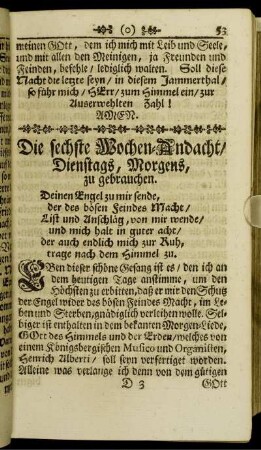 (0) 53
meinen GOtt, dem ich mich mit Leib und Seele,
und mit allen den Meinigen, ja Freunden und
Feinden, befehle/ lediglich walten. Soll diese
Nacht die letzte seyn/ in diesem Jammerthal/
so führ mich/ HErr/ zum Himmel ein/ zur
Auserwehlten Zahl!
AMEN.
Die sechste Wochen-Andacht/
Dienstags, Morgens,
zu gebrauchen.
Deinen Engel zu mir sende,
der des bösen Feindes Macht/
List und Anschläg, von mir wende/
und mich halt in guter acht/
der auch endlich mich zur Ruh,
trage nach dem Himmel zu.
EBen dieser schöne Gesang ist es/ den ich an
dem heutigen Tage anstimme, um den
Höchsten zu erbitten, daß er mir den Schutz
der Engel wider des bösen Feindes Macht, im Le-
ben und Sterben, gnädiglich verleihen wolle. Sel-
biger ist enthalten in dem bekanten Morgen-Liede,
GOtt des Himmels und der Erden/ welches von
einem Königsbergischen Musico und Organisten,
Henrich Alberti/ soll seyn verfertiget worden.
Alleine was verlange ich denn von dem gütigen
D 3 GOtt